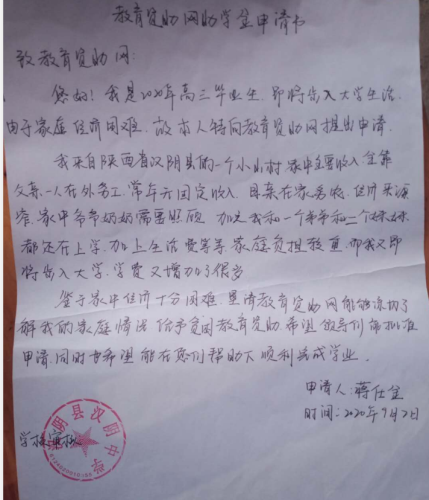 教育资助网助学金申请书
致教育资助网:
您好! 我是2020年高三毕业生, 即将步入大学生活,
由于家庭经济困难, 故本人特向教育资助网提出申请.
我来自陕西省汉阴县的一个小山村, 家中主要收入全靠
父亲一人在外务工, 常年无固定收入. 母亲在家务农, 经济来源
家中爷爷奶奶需要照顾 加之我和一个弟弟和二个妹妹
都还在上学, 加上生活费等等 家庭负担较重 而我又即
将步入大学, 学费又增加了很多
鉴于家中经济十分困难, 恳请教育资助网能够深切了
解我的家庭情况 给予贫困教育资助, 希望领导们能批准
申请, 同时也希望能在您们帮助下顺利完成学业。
申请人: 蒋仕金
时间: 2020年9月2日
学校审核
汉阴县汉阴中学